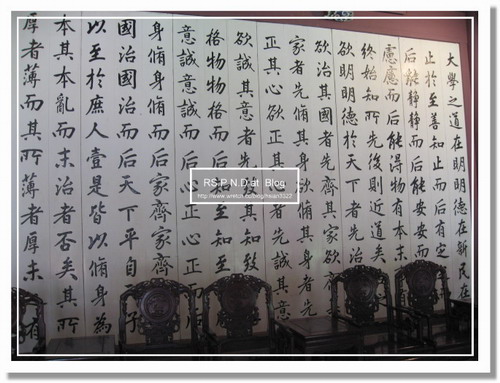 大學之道在明明德在新民在
止於至善知止而后有定
后能靜靜而后能安安而
慮慮而后能得物有本末
終始知所先後則近道矣
欲明明德於天下者先
欲治其國者先齊其家欲
家者先脩其身欲脩其身者先
正其心欲其心者先誠其意
欲誠其意者先其知致
格物物格而知至知至
意誠意誠而心正心正而后
身脩身脩而后家齊家齊
國治國治而后天下平自子
以至於庶人壹是皆以脩身為
本其本亂而末治者否矣其所
厚者薄而其所薄者厚未有
RS.P.N.Dat Blog